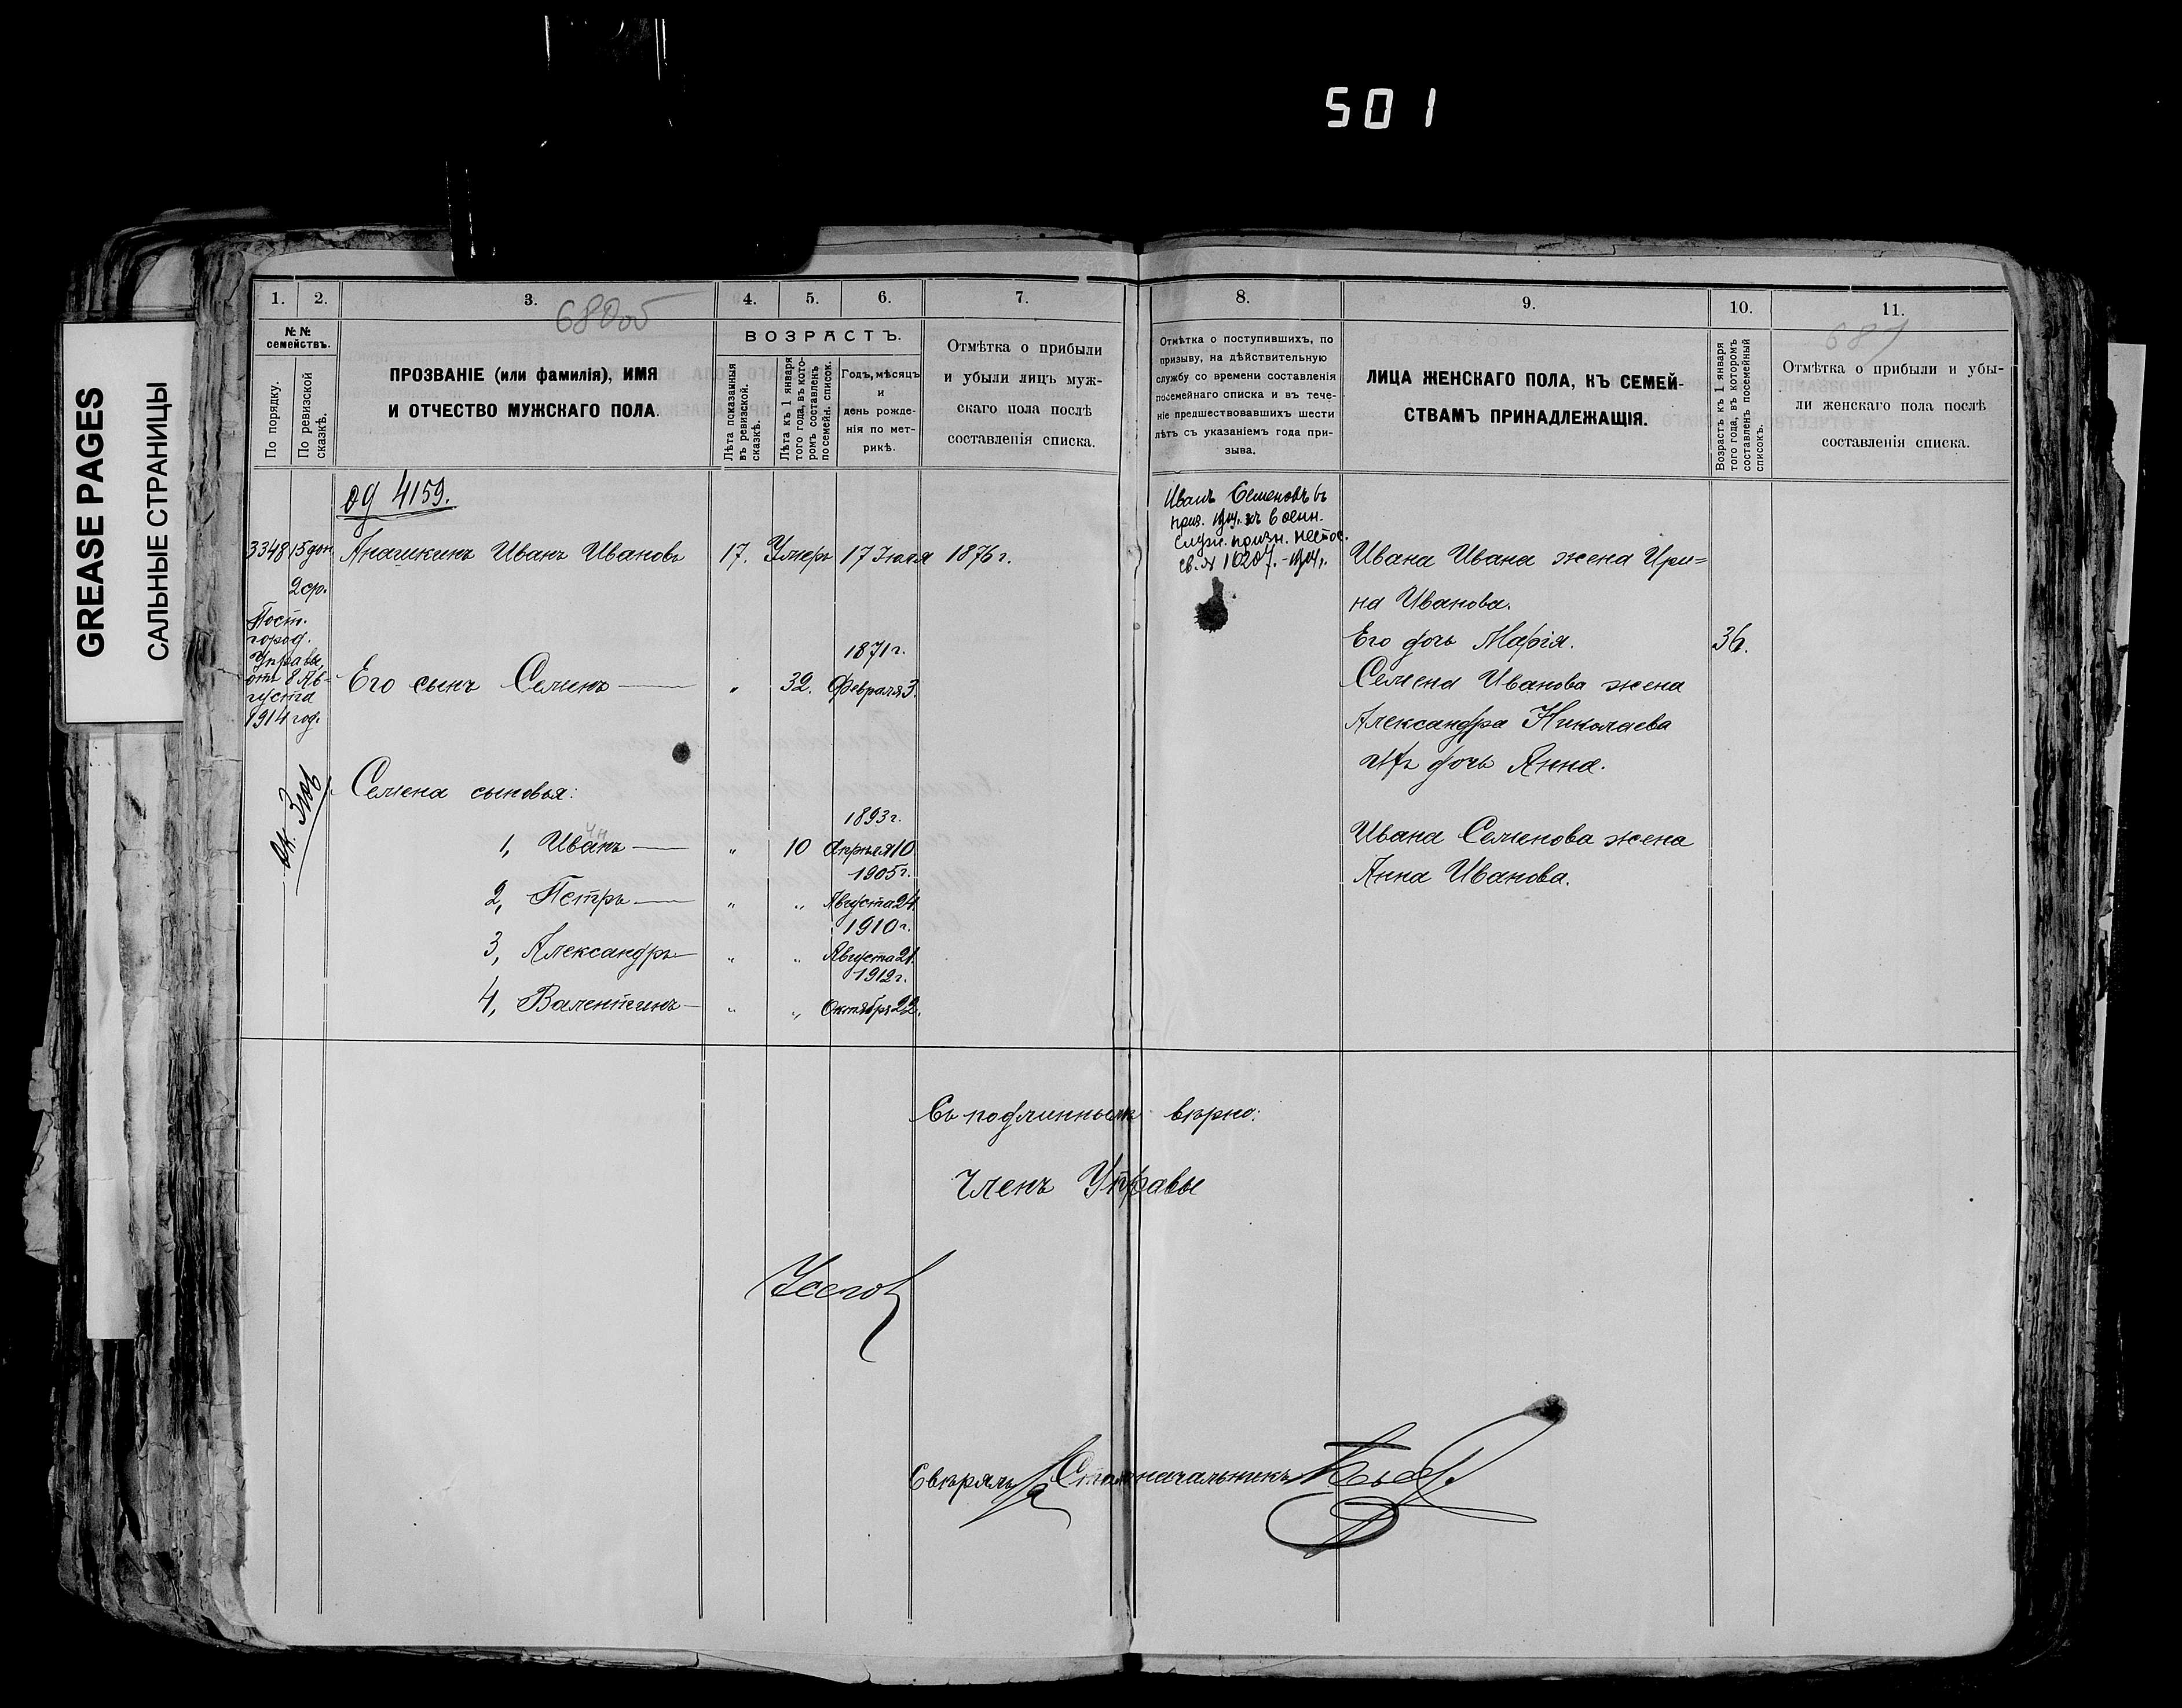 501
GREASE PAGES
САЛЬНЫЕ СТРАНИЦЫ
1.
2.
3.
4.
5.
6.
7.
8.
9.
10.
11.
680об
681
№ №
семействъ.
По порядку.
По ревизской
сказкѣ.
ПРОЗВАНІЕ (или фамилія), ИМЯ
И ОТЧЕСТВО МУЖСКАГО ПОЛА.
ВОЗРАСТЪ.
Лѣта показанныя
въ ревизской.
сказкѣ.
Лѣта къ 1 января
того года, въ кото-
ромъ составленъ
посемейн. список.
Годъ, мѣсяцъ
и
день рожде-
нія по мет-
рикѣ.
Отмѣтка о прибыли
и убыли лицъ муж-
скаго пола послѣ
составленія списка.
Отмѣтка о поступившихъ, по
призыву, на дѣйствительную
службу со времени составленія
посемейнаго списка и въ тече-
ніе предшествовавшихъ шести
лѣтъ съ указаніемъ года при-
зыва.
ЛИЦА ЖЕНСКАГО ПОЛА, КЪ СЕМЕЙ-
СТВАМЪ ПРИНАДЛЕЖАЩІЯ.
Возрастъ къ 1 января
того года, въ которомъ
составленъ посемейный
списокъ.
Отмѣтка о прибыли и убы-
ли женскаго пола послѣ
составленія списка.
4159.
3348
15 доп.
2 ср.
Пост.
город.
Управы,
от 8 Ав-
густа
1914 год.
Анашкинъ Иванъ Ивановъ 17. Умеръ 17 Іюля 1876 г.
1871 г.
Его сынъ Семенъ — „ 32. Февраля 3.
Семена сыновья:
1893 г.
1, Иванъ — „ 10 Апрѣля 10
1905 г.
2, Петръ — „ „ Августа 24
1910 г.
3, Александръ — „ „ Августа 21.
1912 г.
4, Валентинъ — „ „ Октября 22.
Иванъ Семеновъ въ
служ. призн.
Ивана Ивана жена Ири=
на Иванова.
Его дочь Марія. 36.
Семена Иванова жена
Александра Николаева
ихъ дочь Анна.
Ивана Семенова жена
Анна Иванова.
Съ подлиннымъ вѣрно:
Членъ Управы
Свѣрялъ
Столоначальникъ